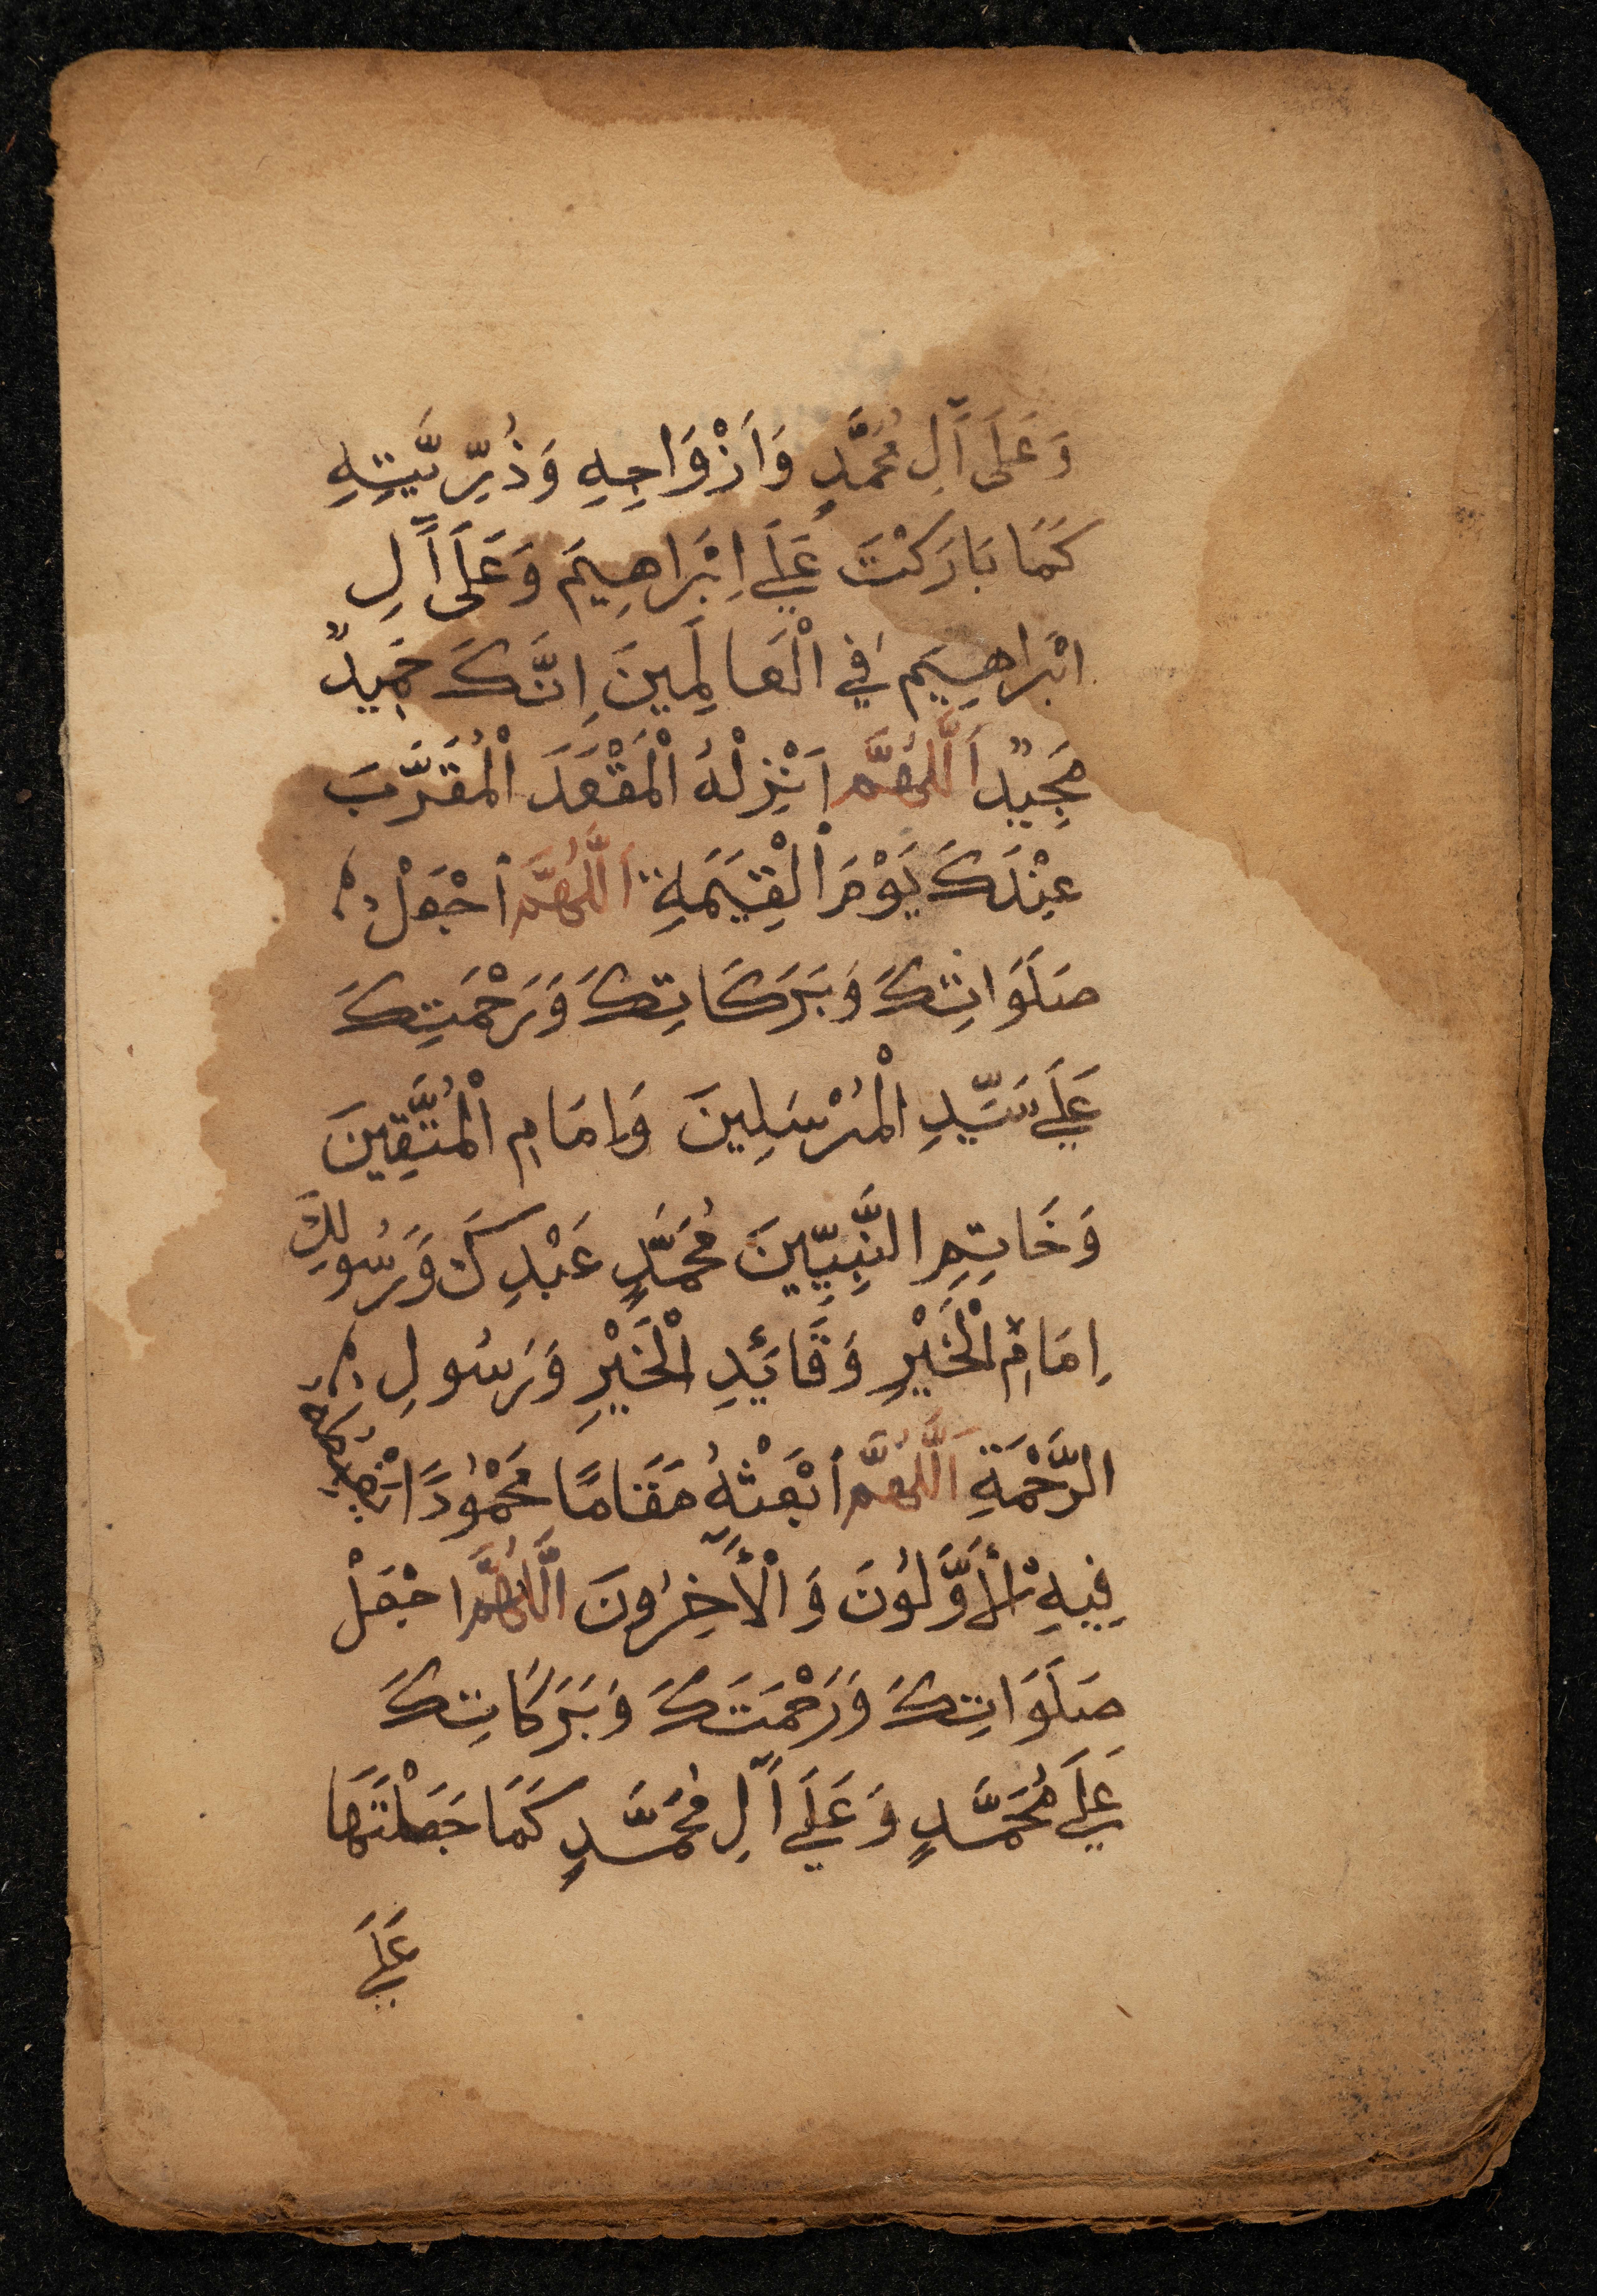 وَعَلَى آلِ مُحَمَّدٍ وَاَزْوَاجِهِ وَذُرِّيَّتِهِ
كَمَا بَارَكْتَ عَلَي اِبْرَاهِيمَ وَعَلَى آلِ
ابْرَاهِيمَ فِي الْعَالَمِينَ اِنَّكَ حَمِيدٌ
مَجِيدٌ اَللَّهُمَّ اَنْزِلْهُ الْمَقْعَدَ الْمُقَرَّبَ
عِنْدَكَ يَوْمَ الْقِيَمَةِ اَللَّهُمَّ اجْعَلْ
صَلَوَاتِكَ وَبَرَكَاتِكَ وَرَحْمَتِكَ
عَلَي سَيِّدِ الْمُرْسَلِينَ وَاِمَامِ الْمُتَّقِينَ
وَخَاتِمِ النَّبِيِّينَ مُحَمَّدٍ عَبْدِكَ وَرَسُولِكَ
اِمَامِ الْخَيْرِ وَقَائِدِ الْخَيْرِ وَرَسُولِ
الرَّحْمَةِ اَللَّهُمَّ ابْعَثْهُ مَقَامًا مَحْمُودًا
فِيهِ الْأَوَّلُونَ وَالْآخِرُونَ اللَّهُمَّ اجْعَلْ
صَلَوَاتِكَ وَرَحْمَتَكَ وَبَرَكَاتِكَ
عَلَي مُحَمَّدٍ وَعَلَي آلِ مُحَمَّدٍ كَمَا جَعَلْتَهَا
عَلَي